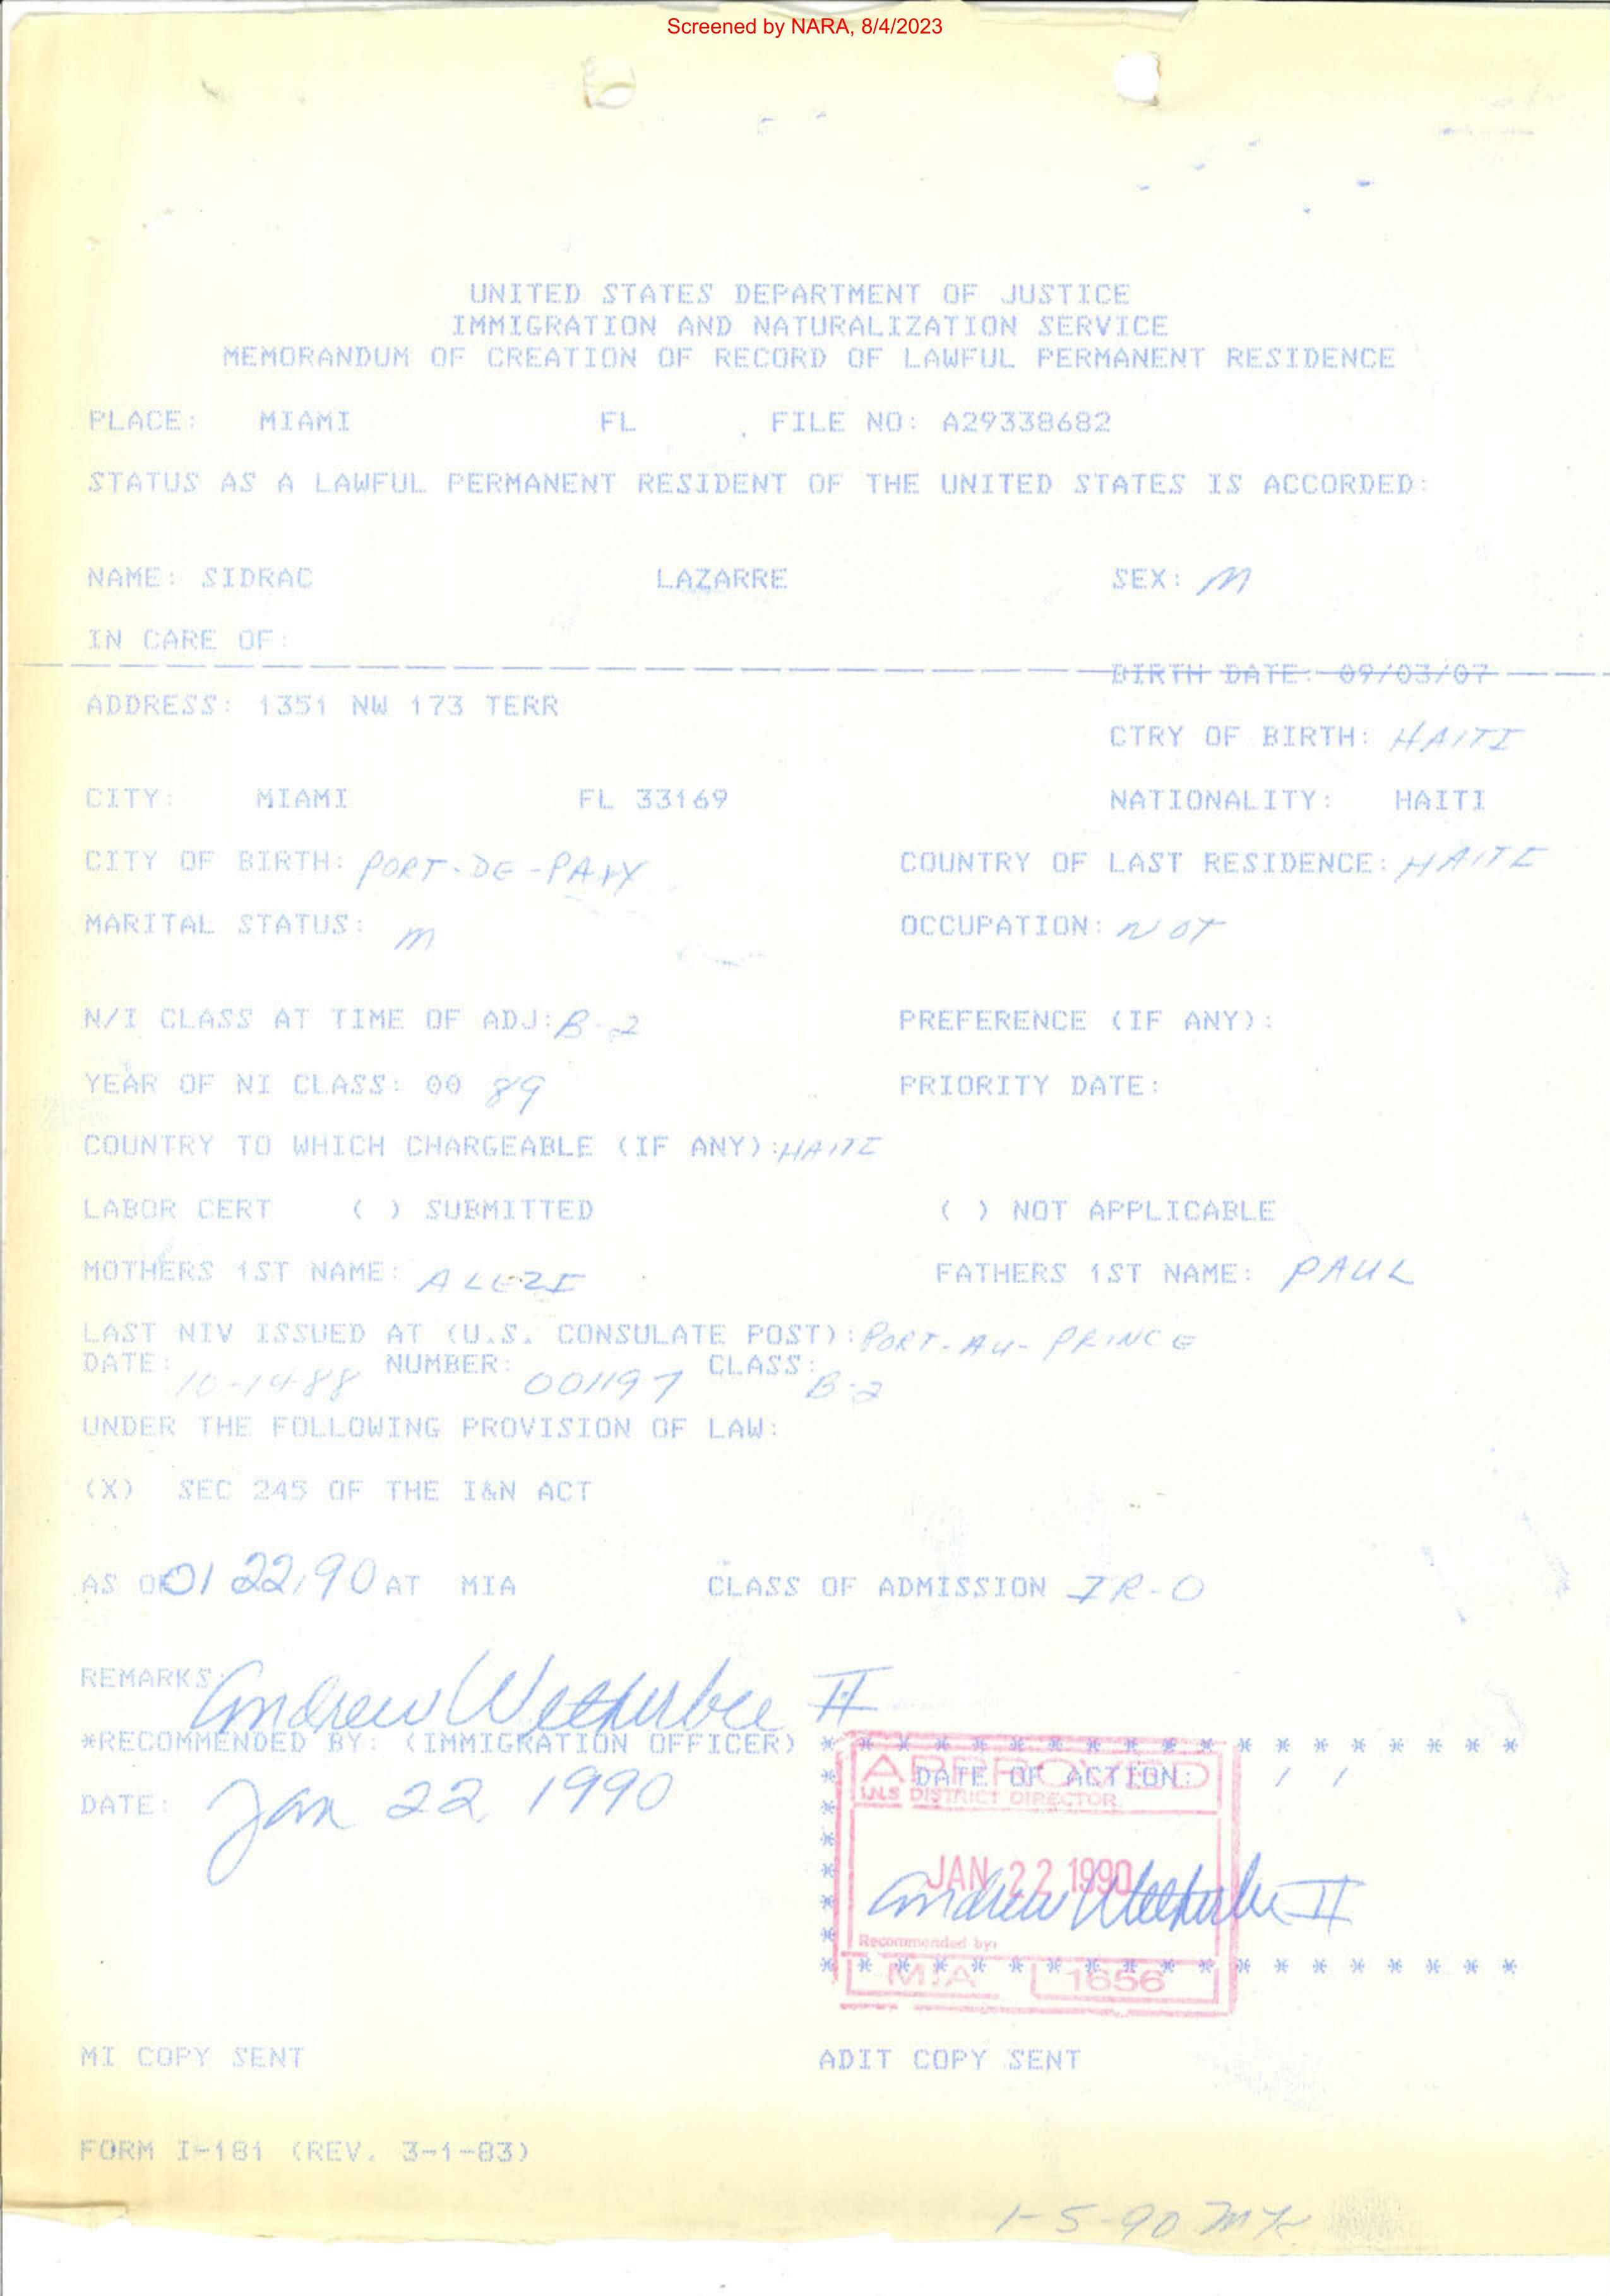 Screened by NARA, 8/4/2023
UNITED STATES DEPARTMENT OF JUSTICE
IMMIGRATION AND NATURALIZATION SERVICE
MEMORANDUM OF CREATION OF RECORD OF LAWFUL PERMANENT RESIDENCE
PLACE: MIAMI FL FILE NO: A29338682
STATUS AS A LAWFUL PERMANENT RESIDENT OF THE UNITED STATES IS ACCORDED:
NAME: SIDRAC LAZARRE SEX: M
IN CARE OF:
BIRTH DATE: 09/03/07
ADDRESS: 1351 NW 173 TERR
CTRY OF BIRTH: HAITI
CITY: MIAMI FL 33169 NATIONALITY: HAITI
CITY OF BIRTH: PORT-DE-PAIX COUNTRY OF LAST RESIDENCE: HAITI
MARITAL STATUS: M OCCUPATION: NOT
N/I CLASS AT TIME OF ADJ: B-2 PREFERENCE (IF ANY):
YEAR OF NI CLASS: 00 89 PRIORITY DATE:
COUNTRY TO WHICH CHARGEABLE (IF ANY): HAITI
LABOR CERT ( ) SUBMITTED ( ) NOT APPLICABLE
MOTHERS 1ST NAME: ALEZI FATHERS 1ST NAME: PAUL
LAST NIV ISSUED AT (U.S. CONSULATE POST): PORT-AU-PRINCE
DATE: 10-14-88 NUMBER: 001197 CLASS: B-2
UNDER THE FOLLOWING PROVISION OF LAW:
(X) SEC 245 OF THE I&N ACT
AS OF 01 22, 90 AT MIA CLASS OF ADMISSION IR-0
REMARKS: Andrew Wetherbee II
*RECOMMENDED BY: (IMMIGRATION OFFICER) * * * * * * * * * * * * * * * * * * *
APPROVED
* DATE OF ACTION: / /
I.N.S DISTRICT DIRECTOR
DATE: Jan 22, 1990
JAN 22 1990
Andrew Wetherbee II
Recommended by:
* * * * * * * * * * * * * * * * * * *
MIA 1656
MI COPY SENT ADIT COPY SENT
FORM I-181 (REV. 3-1-83)
1-5-90